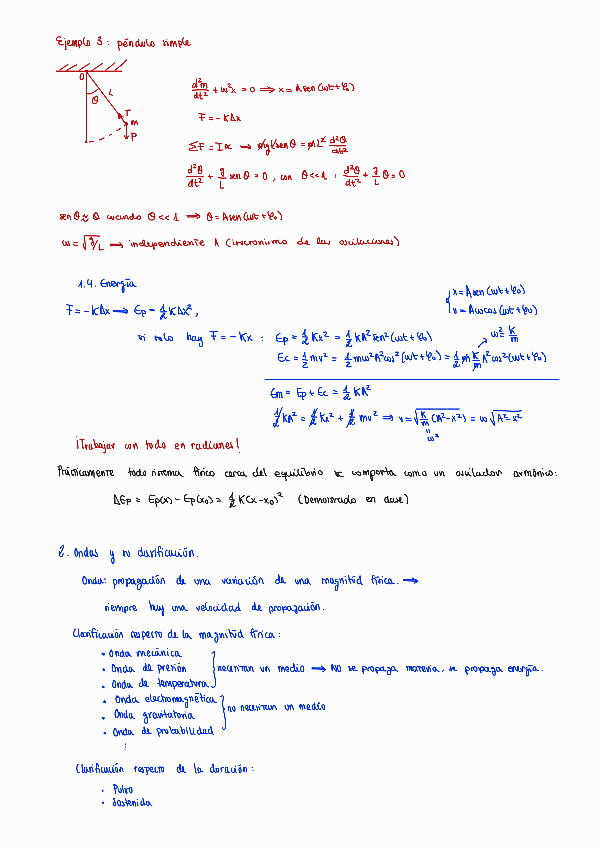 Ejemplo 3: péndulo simple
O
θ
L
T
m
P
d²m/dt² + ω²x = 0 ⟹ x = A sen(ωt + φ₀)
F = -KΔx
ΣF = Iα → mgL sen θ = mL² d²θ/dt²
d²θ/dt² + g/L sen θ = 0, con θ<<1 : d²θ/dt² + g/L θ = 0
sen θ ≈ θ cuando θ<<1 ⟹ θ = A sen(ωt + φ₀)
ω = √g/L → independiente A (isocronismo de las oscilaciones)
1.4. Energía
F = -KΔx ⟹ Ep = 1/2 KΔx²,
x = A sen(ωt + φ₀)
v = Aω cos(ωt + φ₀)
si solo hay F = -Kx : Ep = 1/2 Kx² = 1/2 KA² sen²(ωt + φ₀)
ω² = K/m
Ec = 1/2 mv² = 1/2 mω²A² cos²(ωt + φ₀) = 1/2 m K/m A² cos²(ωt + φ₀)
Em = Ep + Ec = 1/2 KA²
1/2 KA² = 1/2 Kx² + 1/2 mv² ⟹ v = √K/m (A² - x²) = ω √A² - x²
ω²
¡Trabajar con todo en radianes!
Prácticamente todo sistema físico cerca del equilibrio se comporta como un oscilador armónico:
ΔEp = Ep(x) - Ep(x₀) = 1/2 K(x - x₀)² (Demostrado en clase)
2. Ondas y su clasificación.
Onda: propagación de una variación de una magnitud física. →
siempre hay una velocidad de propagación.
Clasificación respecto de la magnitud física:
• Onda mecánica
• Onda de presión
necesitan un medio → NO se propaga materia, se propaga energía.
• Onda de temperatura
• Onda electromagnética
• Onda gravitatoria
no necesitan un medio
• Onda de probabilidad
⋮
Clasificación respecto de la duración:
• Pulso
• Sostenida